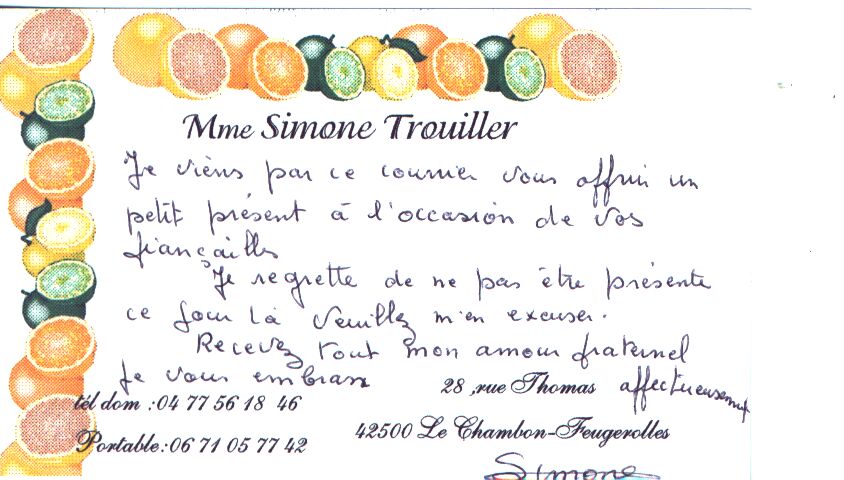 Mme Simone Trouiller
Je viens par ce courrier vous offrir un
petit présent à l'occasion de vos
fiançailles
Je regrette de ne pas être présente
ce jour là veuillez m'en excuser.
Recevez tout mon amour fraternel
Je vous embrasse affectueusement
28 ,rue Thomas
tél dom :04 77 56 18 46
Portable:06 71 05 77 42
42500 Le Chambon-Feugerolles
Simone